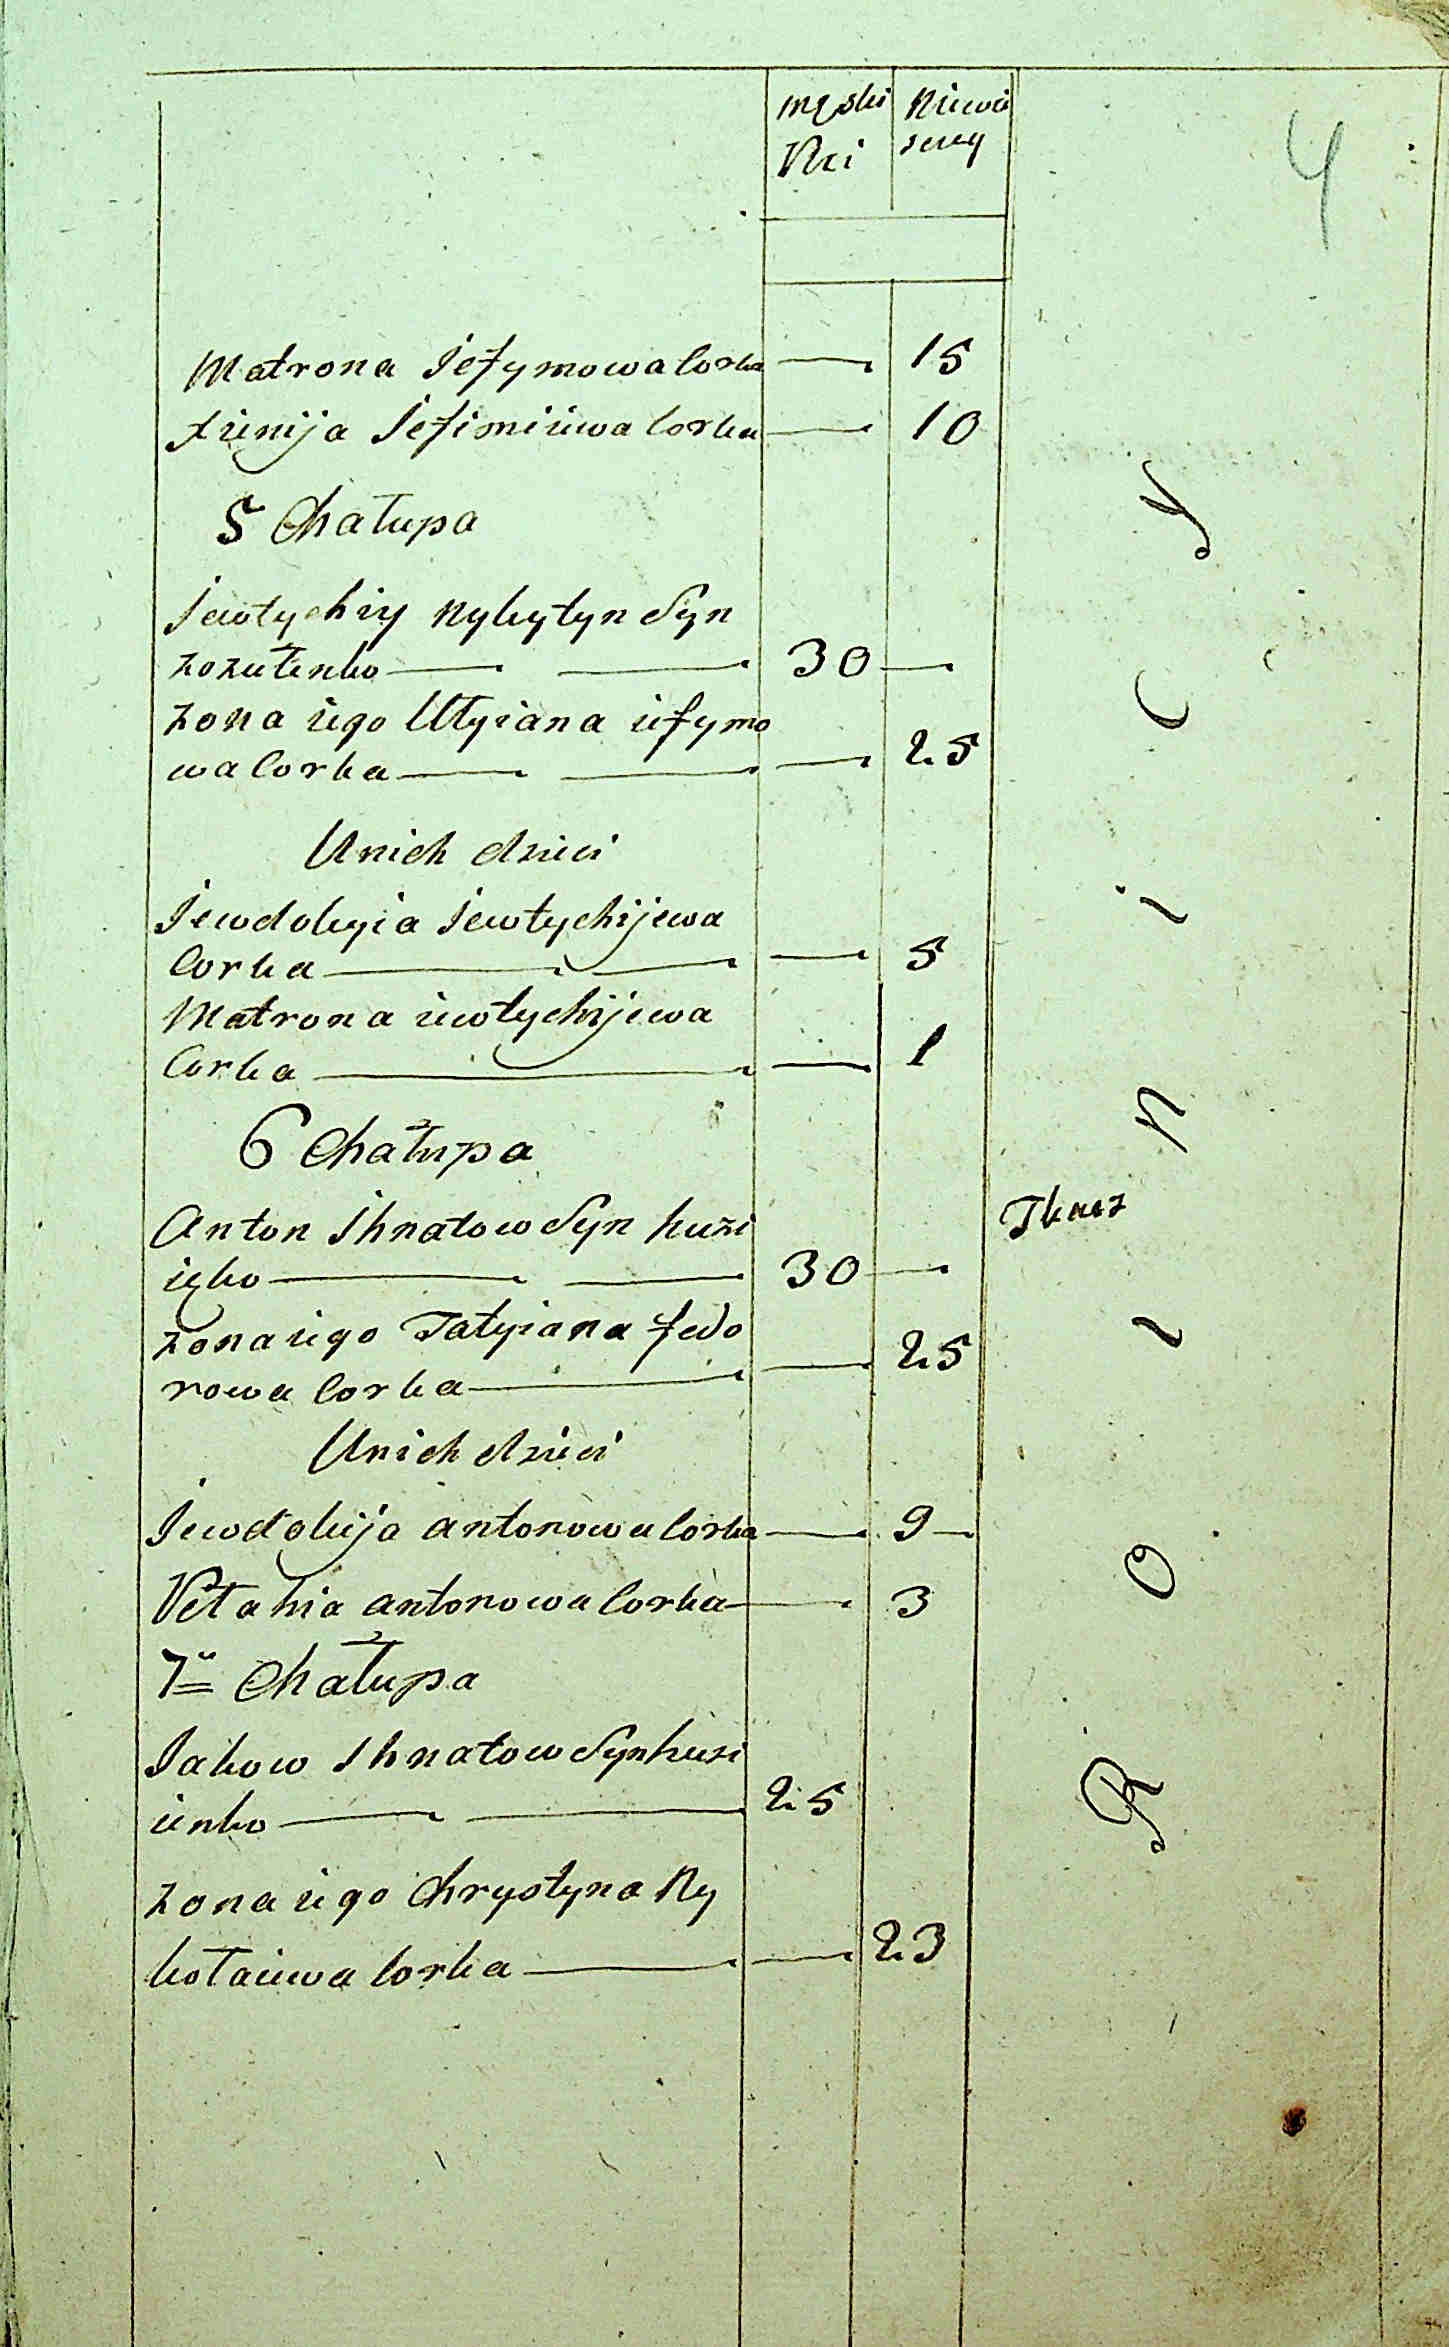 męski
Płci
Niewie
sciey
4
Matrona Jefymowa Corka — 15
Xienija Jefimiiewa Corka — 10
5 Chałupa
Jewtychiy Nykytyn Syn
— — 30 —
żona iego Ulyiana iefymo
wa Corka — — — 25
U nich dzieci
Jewdokyia Jewtychijewa
Corka — — — 5
Matrona iewtychijewa
Corka — — 1
6 Chałupa
Anton Ihnatow Syn kuzi
ięko — — 30 — Tkacz
żona iego Tatyiana fedo
rowa Corka — — 25
U nich dzieci
Jewdokija antonowa Corka — 9 —
Petahia antonowa Corka — 3
7ma Chałupa
Jakow Ihnatow Syn kuzi
ienko — — 25
żona iego Chrystyna Ny
kołaiewa Corka — — 23
Rolnicy